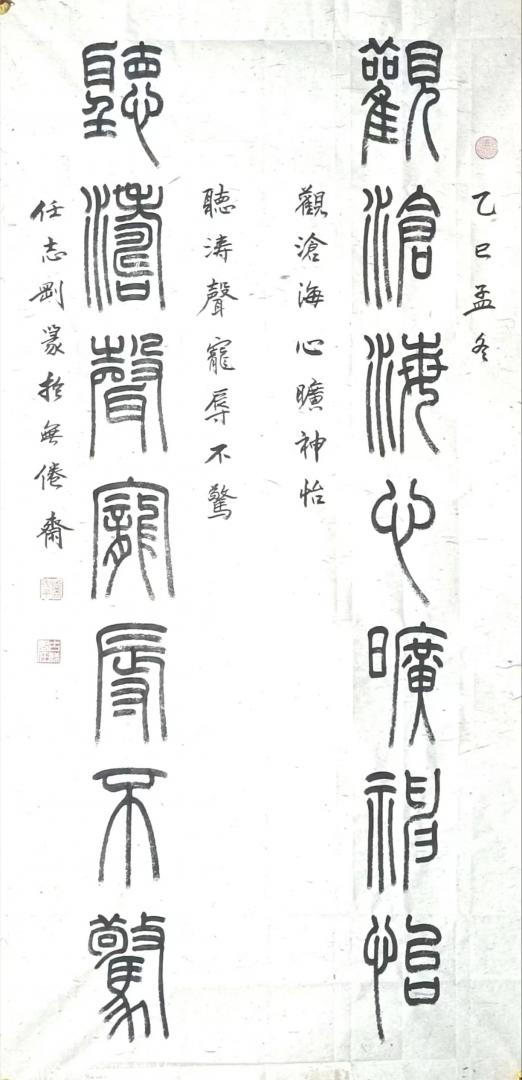 乙巳孟冬
觀滄海心曠神怡
觀滄海心曠神怡
聽涛聲寵辱不驚
聽濤聲寵辱不驚
任志剛篆於無倦齋